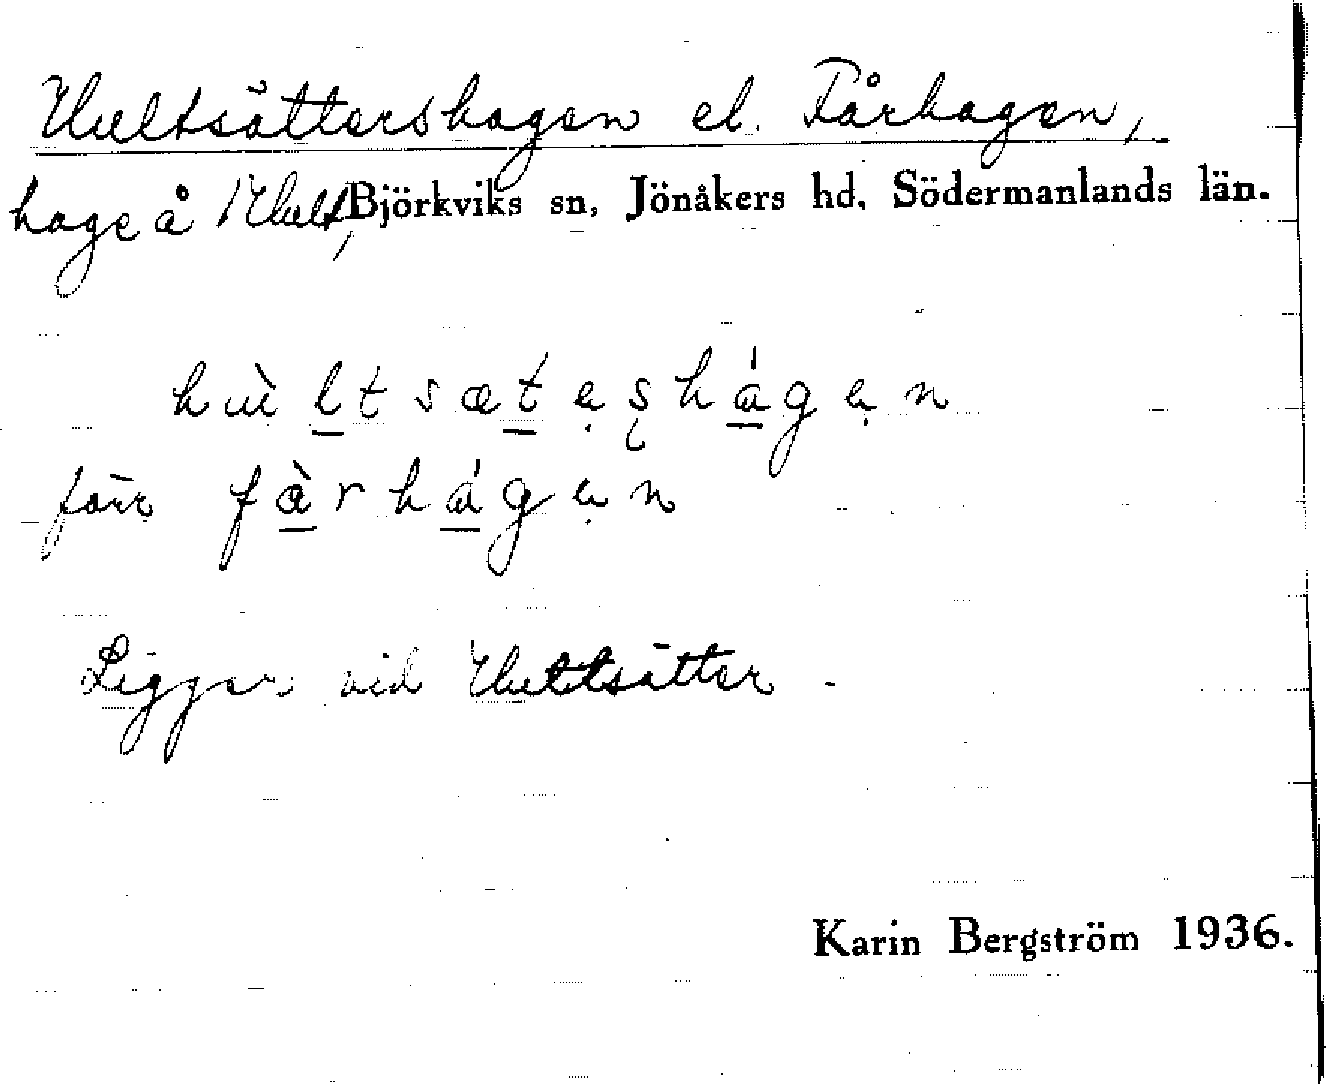 Hultsättershagen el. Fårhagen,
hage å Hult, Björkviks sn, Jönåkers hd, Södermanlands län.
hùltsætẹʂhágẹn
förr fàrhágẹn
Ligger vid Hultsätter.
Karin Bergström 1936.